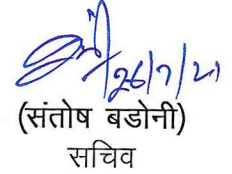 26/7/21
(संतोष बडोनी)
सचिव